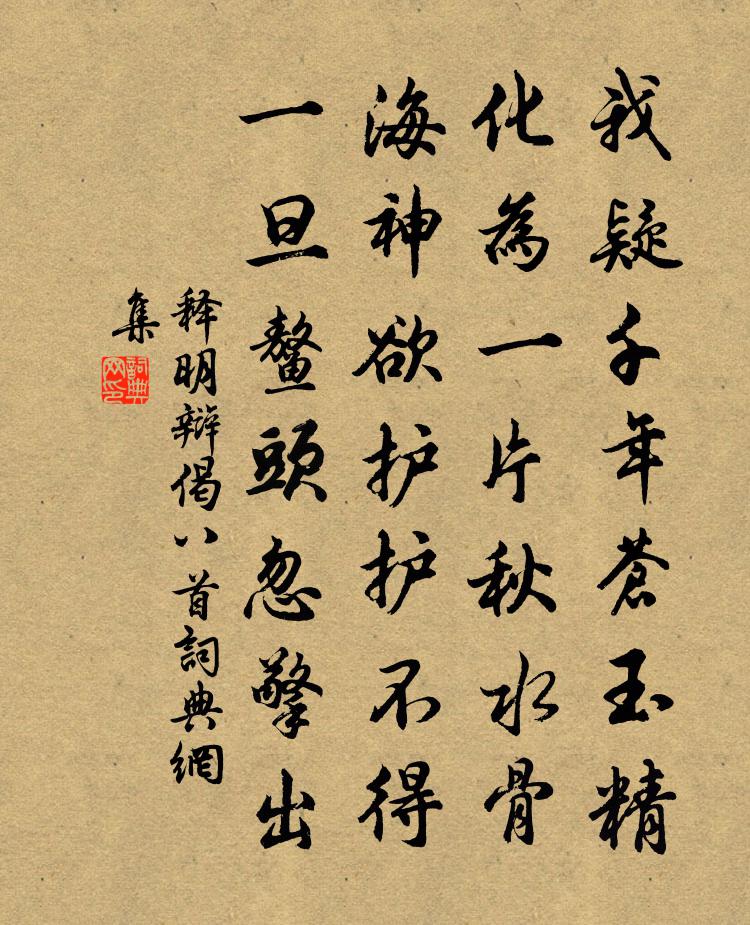 我疑千年蒼玉精
化為一片秋水骨
海神欲护护不得
一旦鼇頭忽擎出
释明辩偈八首詞典網
集
詞典
网印